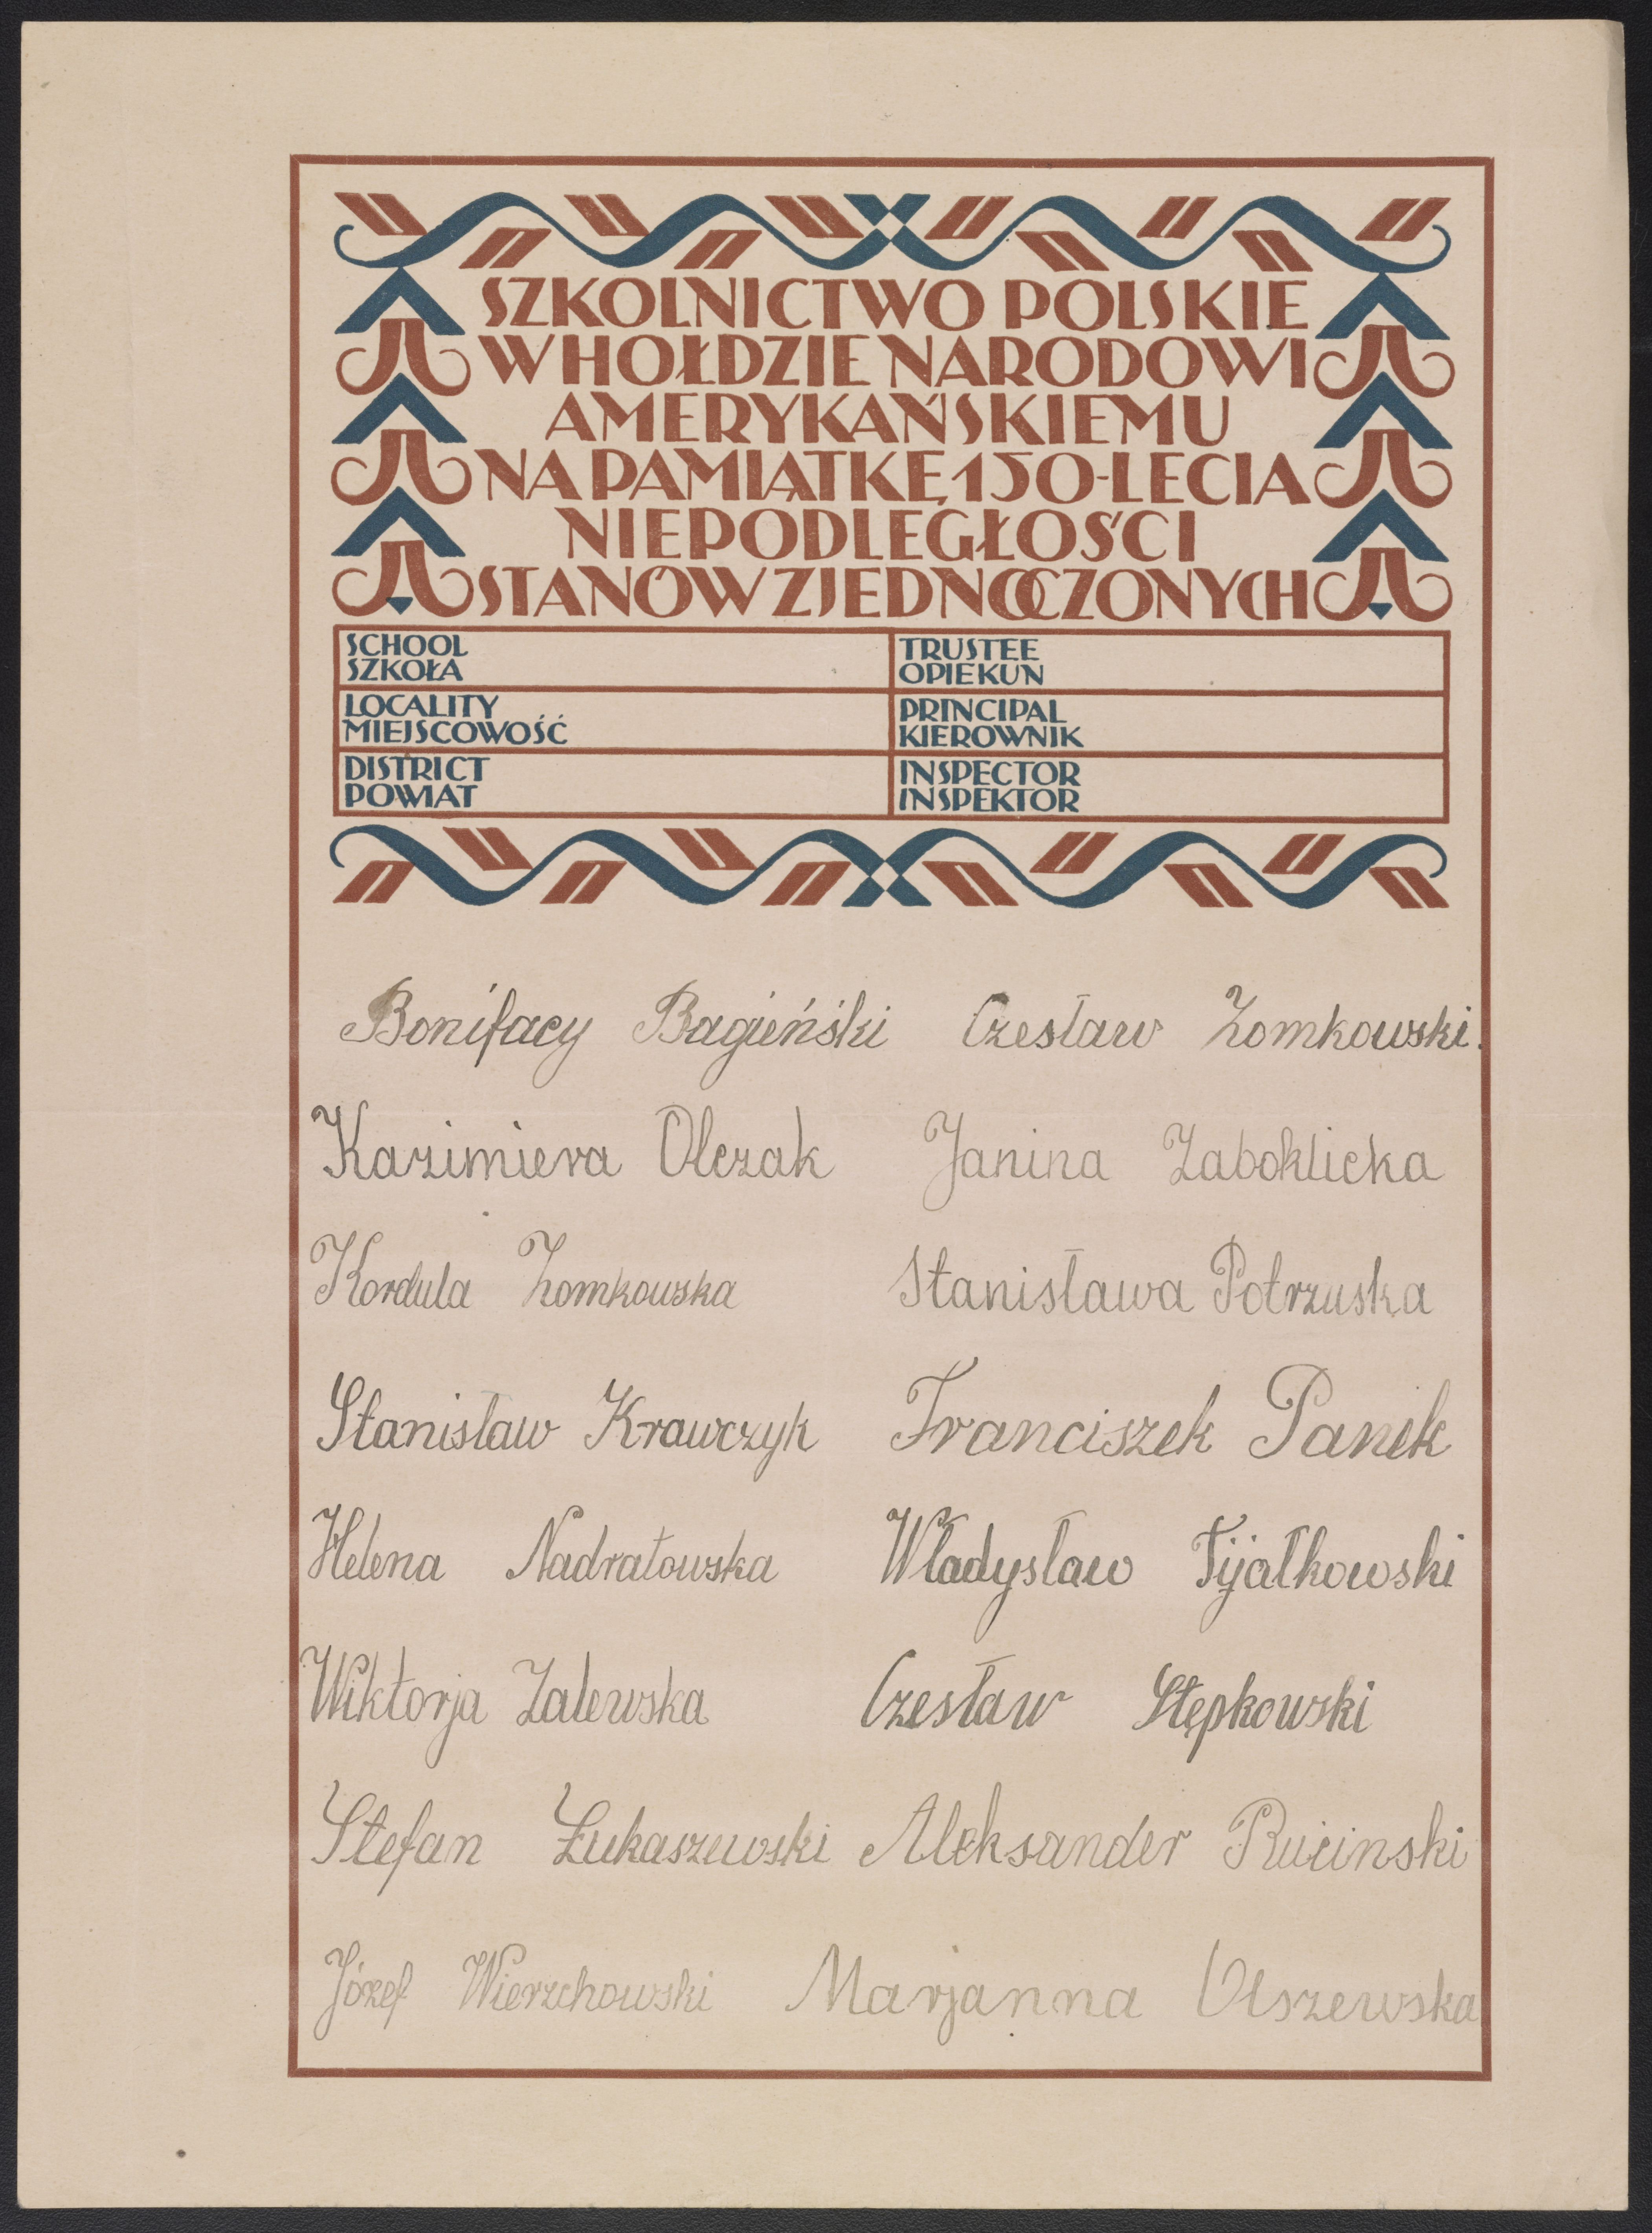 SZKOLNICTWO POLSKIE
W HOŁDZIE NARODOWI
AMERYKAŃSKIEMU
NA PAMIĄTKĘ 150-LECIA
NIEPODLEGŁOŚCI
STANÓW ZJEDNOCZONYCH
SCHOOL
SZKOŁA
TRUSTEE
OPIEKUN
LOCALITY
MIEJSCOWOŚĆ
PRINCIPAL
KIEROWNIK
DISTRICT
POWIAT
INSPECTOR
INSPEKTOR
Bonifacy Bagieński Czesław Żomkowski.
Kazimiera Olczak Janina Zaboklicka
Kordula Żomkowska Stanisława Potrzuska
Stanisław Krawczyk Franciszek Panek
Helena Nadratowska Władysław Fijałkowski
Wiktorja Zalewska Czesław Stępkowski
Stefan Łukaszewski Aleksander Rucinski
Józef Wierzchowski Marjanna Olszewska